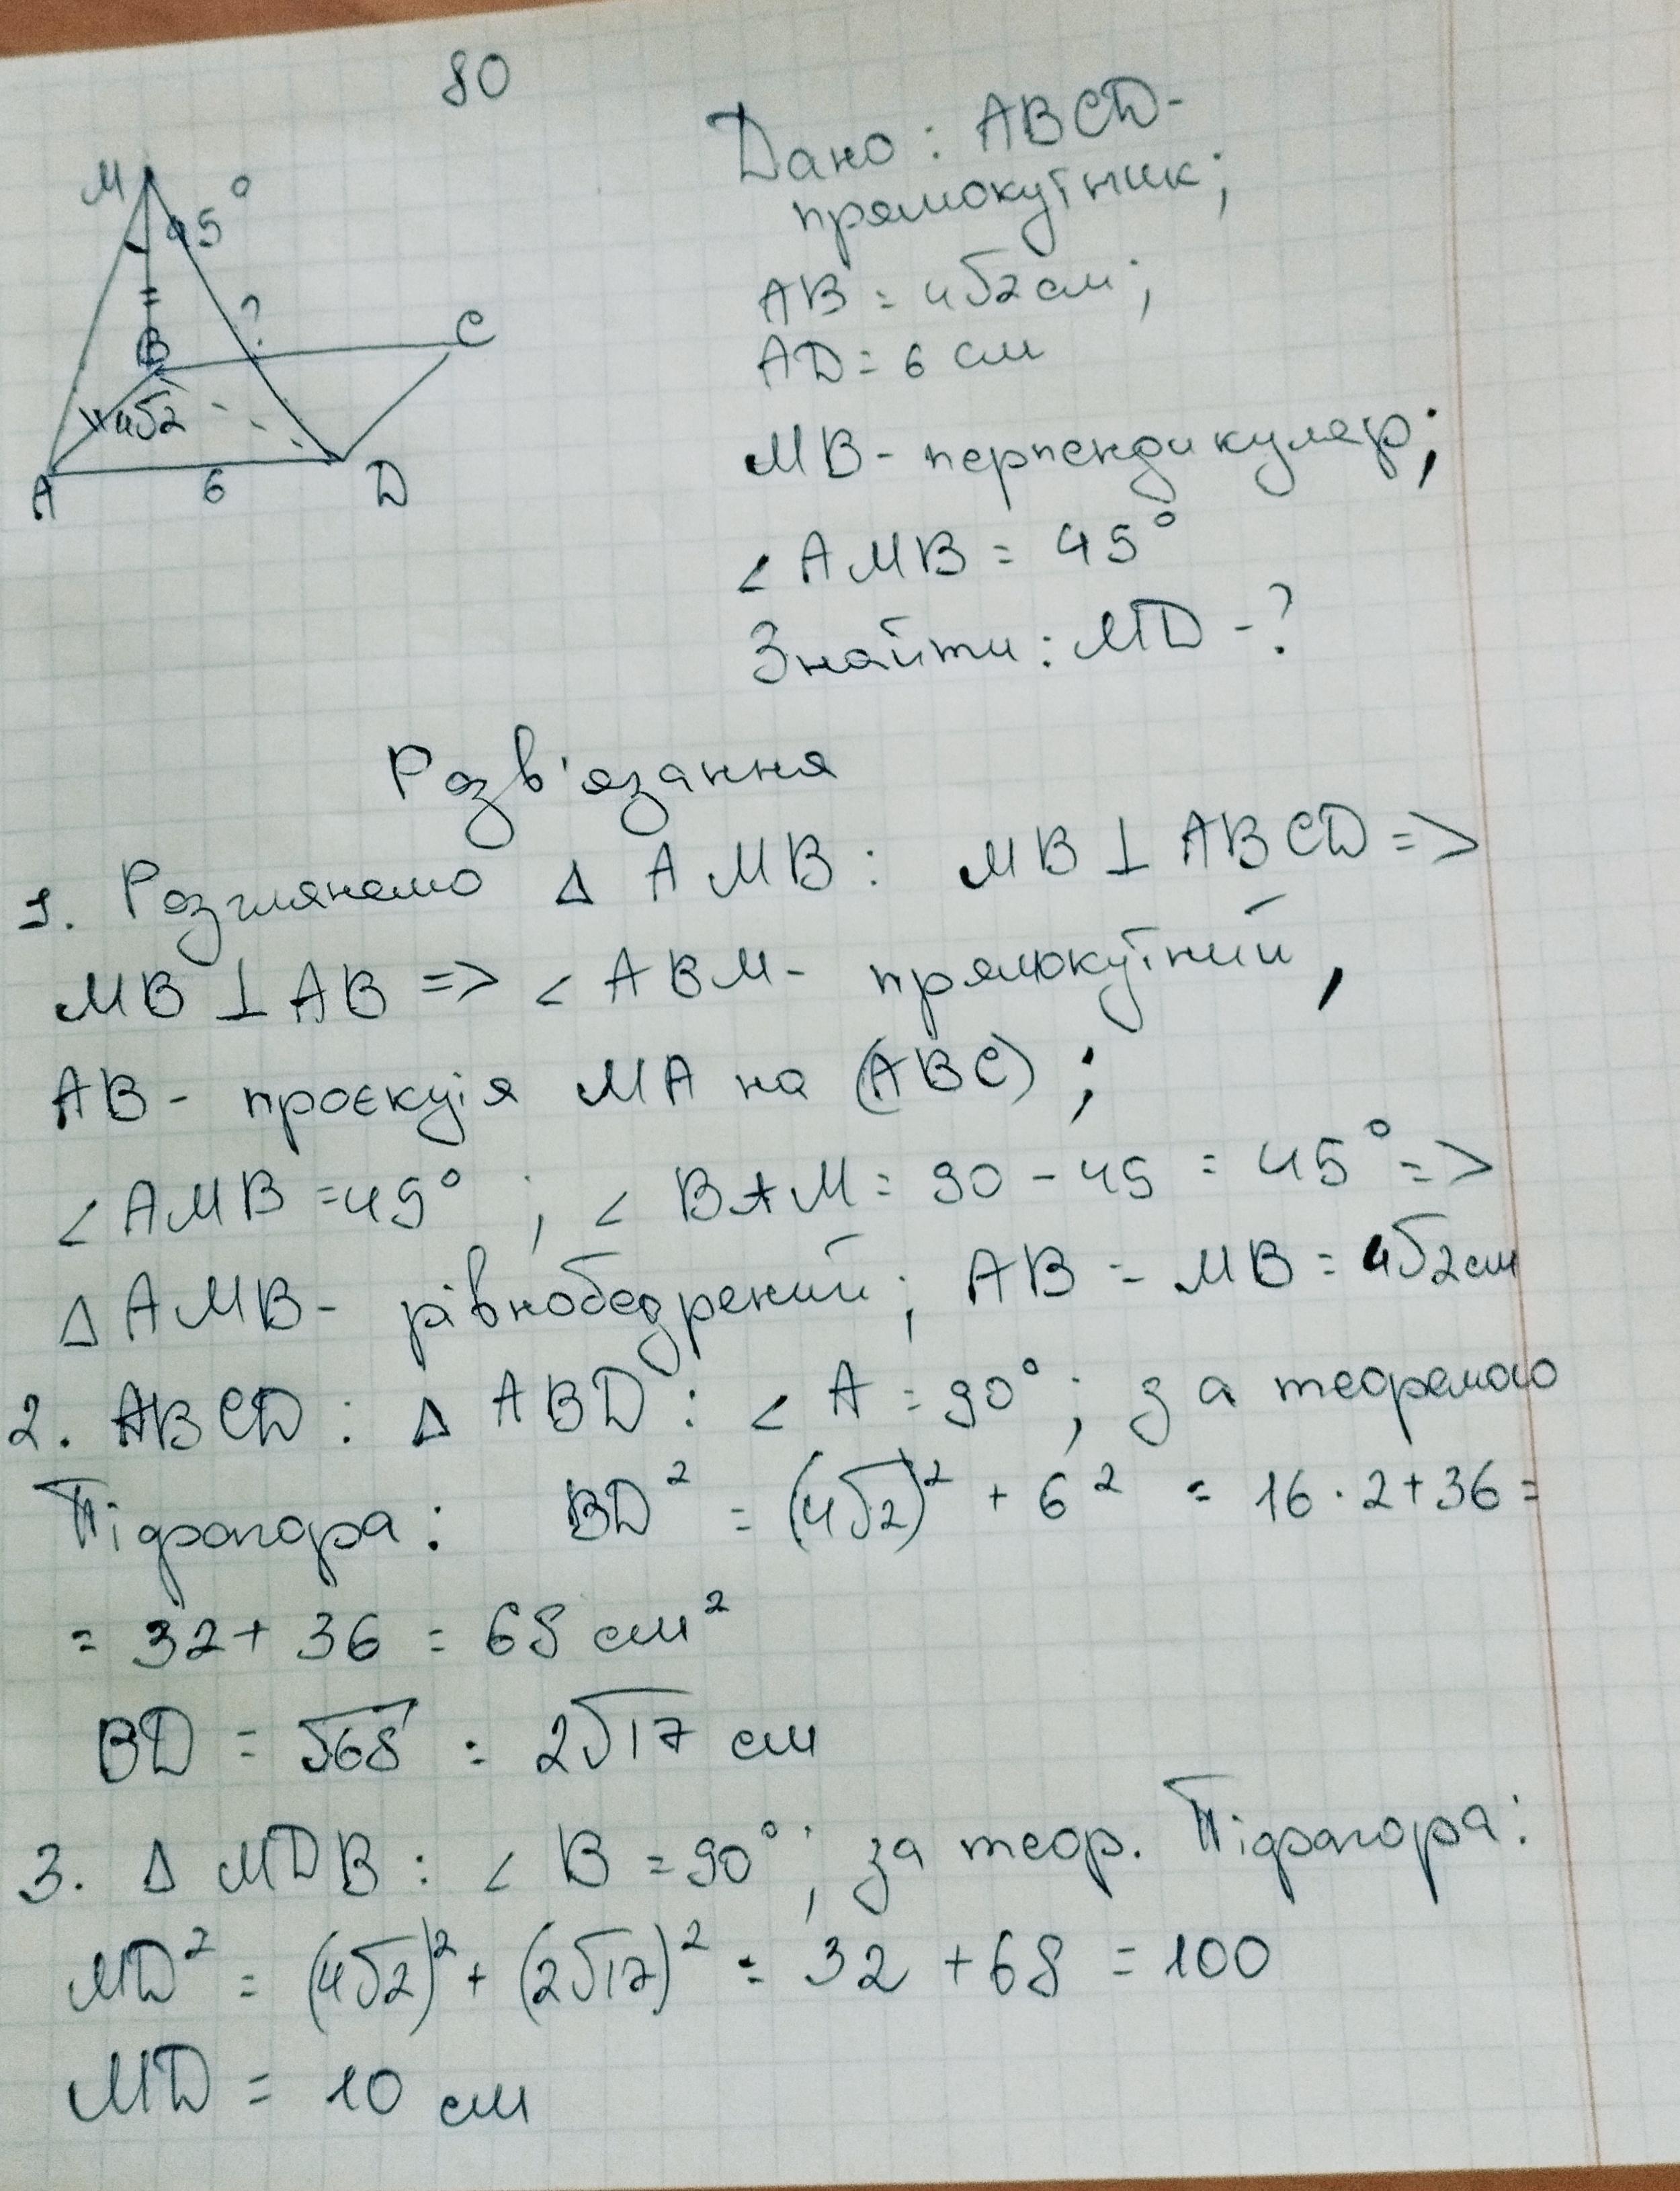 80
M
45°
?
B
C
4√2
A
6
D
Дано: ABCD-
прямокутник;
AB = 4√2 см;
AD = 6 см
MB - перпендикуляр;
∠ AMB = 45°
Знайти: MD - ?
Розв'язання
1. Розглянемо Δ AMB: MB ⊥ ABCD =>
MB ⊥ AB => ∠ ABM - прямокутний,
AB - проєкція MA на (ABC);
∠ AMB = 45°; ∠ BAM = 90 - 45 = 45° =>
Δ AMB - рівнобедрений; AB = MB = 4√2 см
2. ABCD: Δ ABD: ∠ A = 90°; за теоремою
Піфагора: BD² = (4√2)² + 6² = 16 · 2 + 36 =
= 32 + 36 = 68 см²
BD = √68 = 2√17 см
3. Δ MDB: ∠ B = 90°; за теор. Піфагора:
MD² = (4√2)² + (2√17)² = 32 + 68 = 100
MD = 10 см